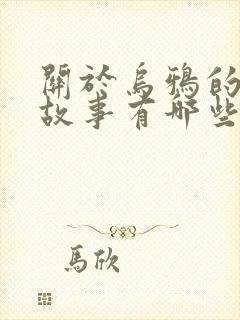 關於烏鴉的
故事有哪些
馬欣